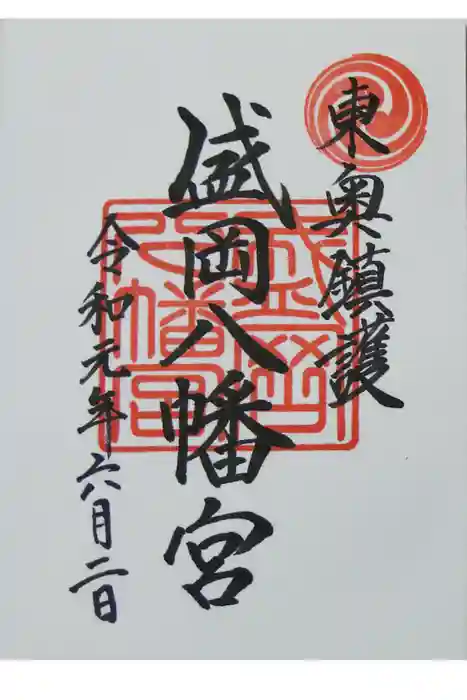 東奥鎮護
盛岡八幡宮
令和元年六月二日
盛岡八幡宮